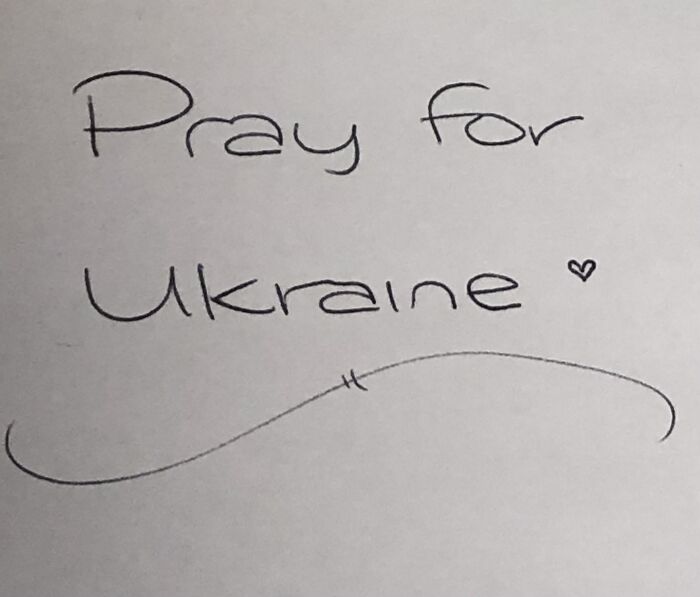 Pray for
Ukraine ♡